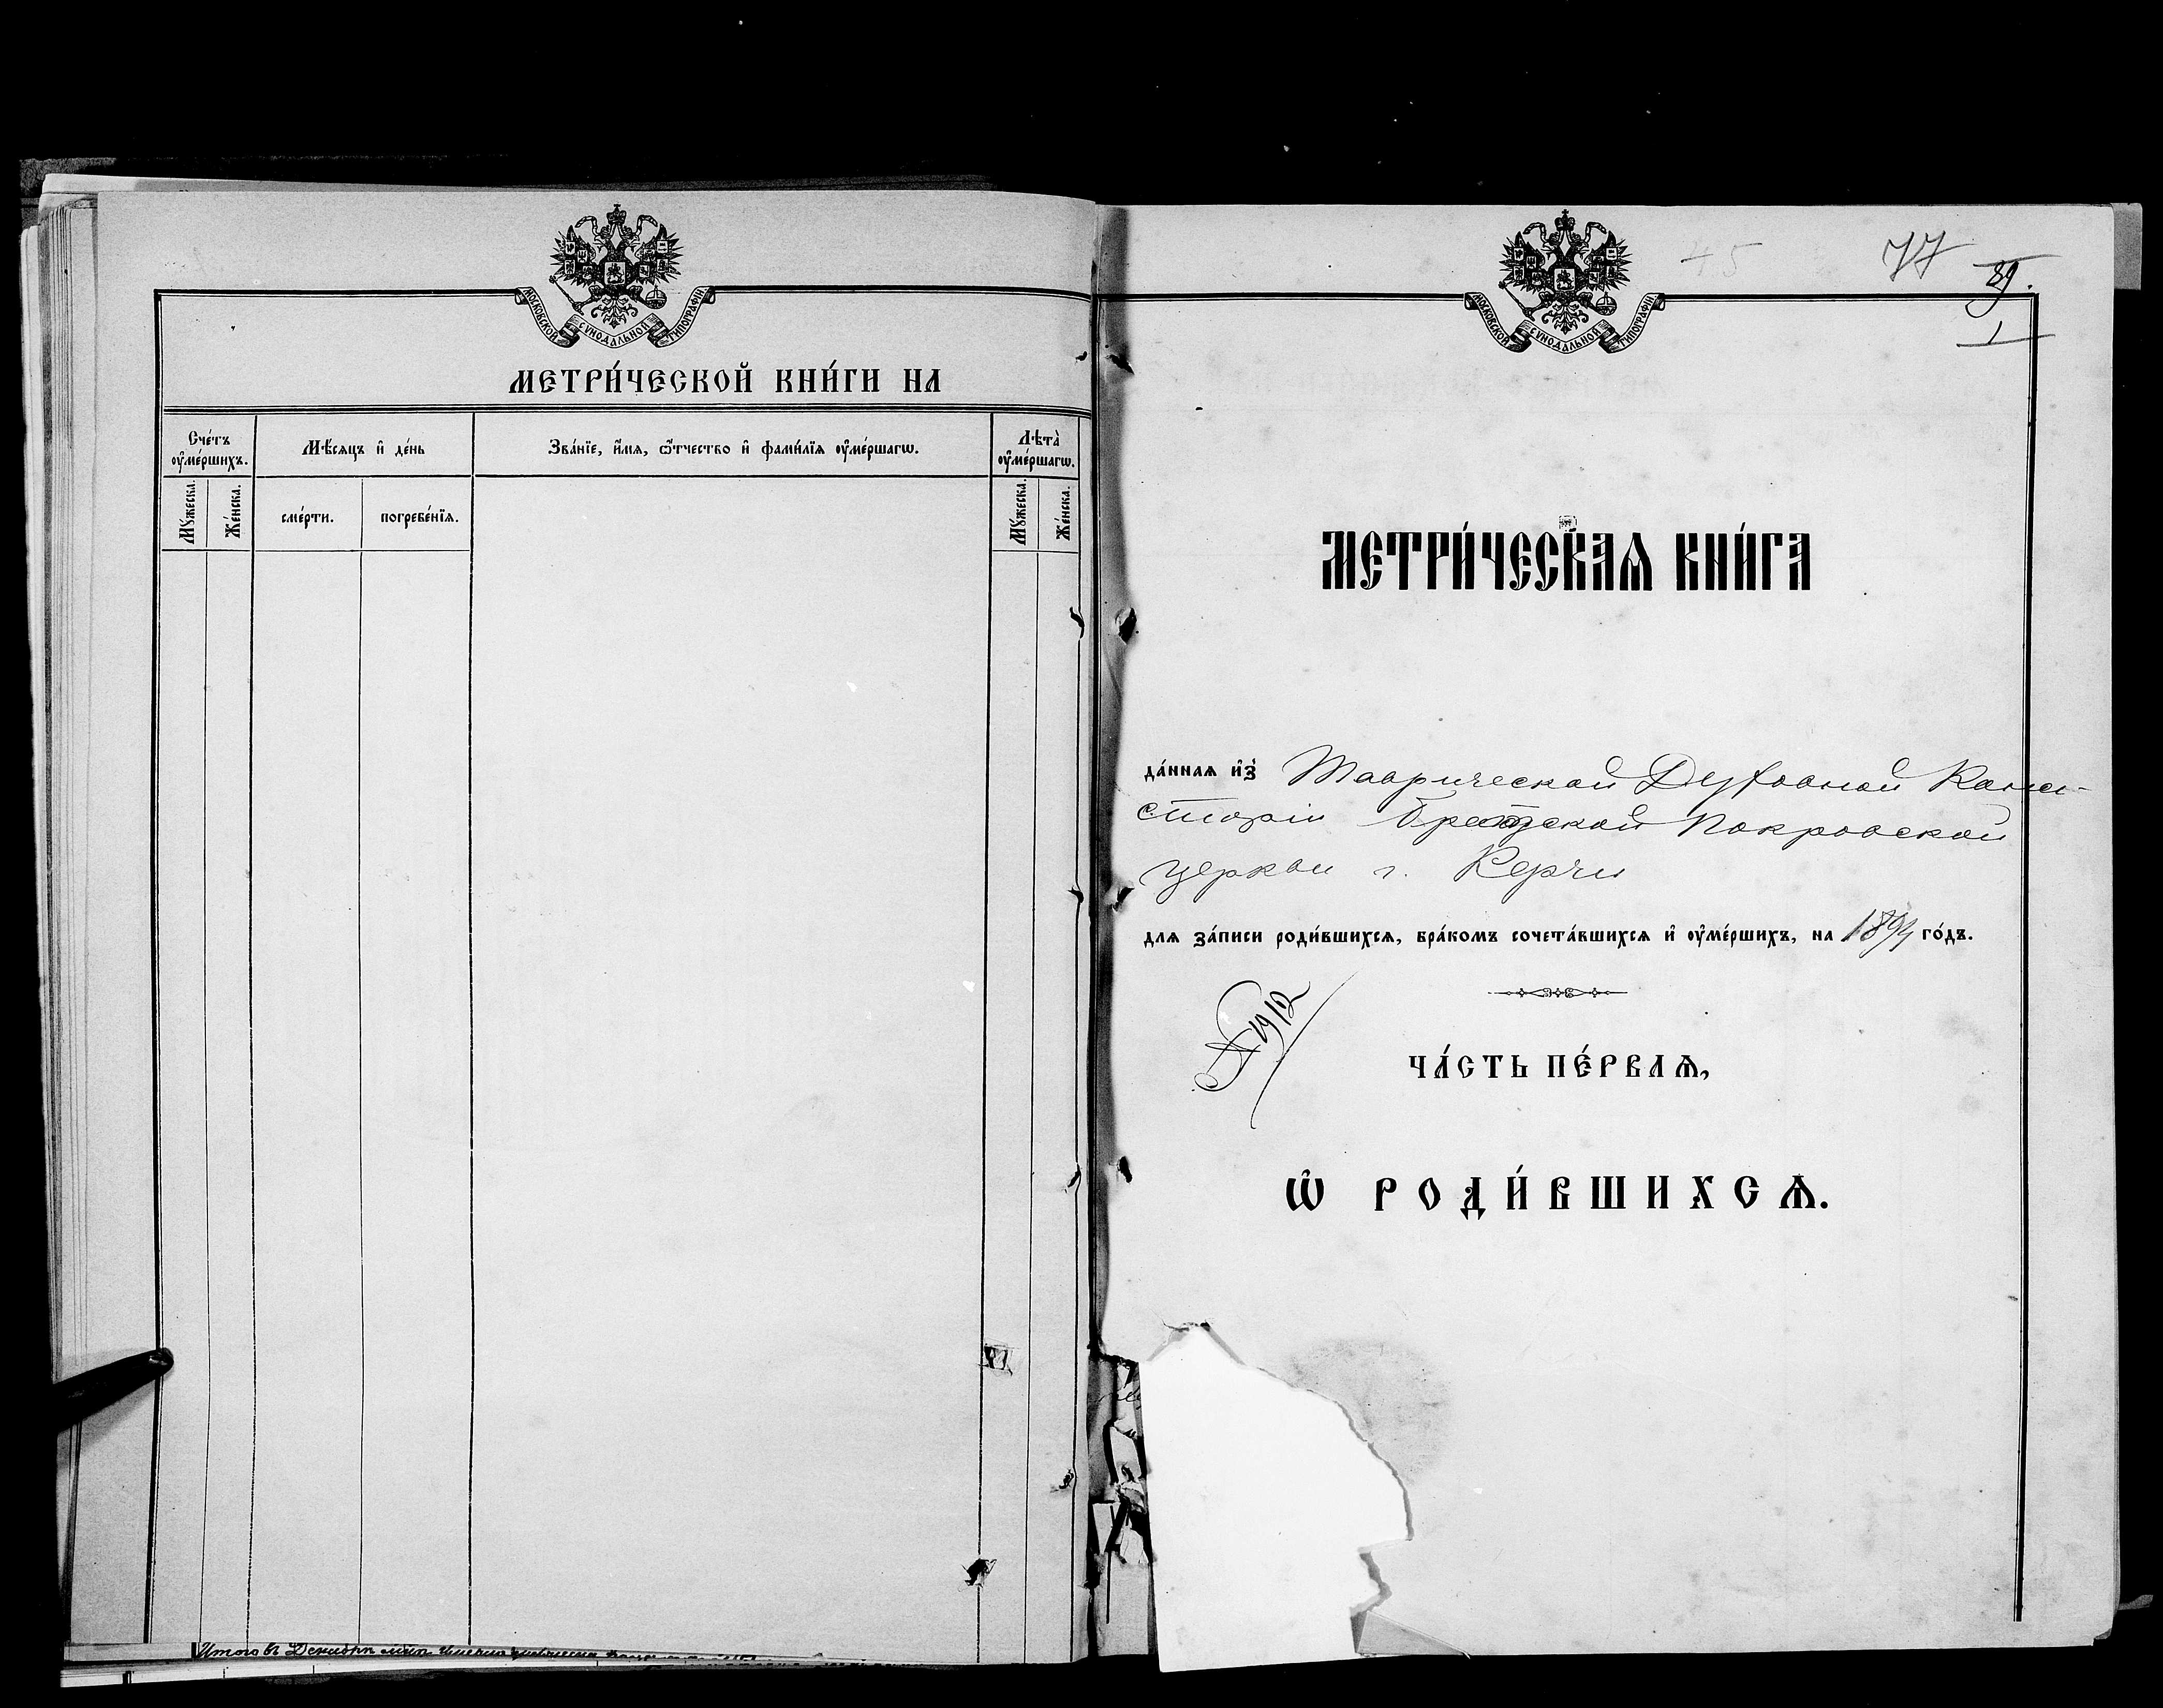 МОСКОВСКОЙ СѴНОДАЛЬНОЙ ТИПОГРАФІИ
МЕТРИ́ЧЕСКОЙ КНИ́ГИ НА
Сче́тъ ᲂу҆ме́ршихъ.
Мѣ́сяцъ и҆ де́нь
Зва́нїе, и҆́мя, ѻ҆́тчество и҆ фами́лїя ᲂу҆ме́ршагѡ.
Лѣта̀ ᲂу҆ме́ршагѡ.
Мꙋ́жеска.
Же́нска.
сме́рти.
погребе́нїя.
Мꙋ́жеска.
Же́нска.
Итого въ Декабрѣ
МОСКОВСКОЙ СѴНОДАЛЬНОЙ ТИПОГРАФІИ
45
77
89.
1
МЕТРИ́ЧЕСКАѦ КНИ́ГА
да́нная и҆з̾ Таврической Духовной Конси-
сторіи Братской Покровской
церкви г. Керчи
для за́писи роди́вшихся, бра́комъ сочета́вшихся и҆ ᲂу҆ме́ршихъ, на 1894 го́дъ.
1912
ЧА́СТЬ ПЕ́РВАѦ,
Ѡ҆ РОДИ́ВШИХСѦ.